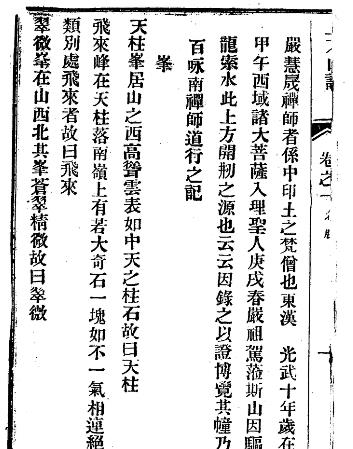 卷之一
嚴慧晟禪師者係中印土之梵僧也東漢　光武十年歲在
甲午西域諸大菩薩入理聖人庚戌春嚴祖駕蒞斯山因驅
龍索水此上方開剏之源也云云因錄之以證博覽其幢乃
百咏南禪師道行之記
峯
天柱峯居山之西高聳雲表如中天之柱石故曰天柱
飛來峰在天柱落南嶺上有若大奇石一塊如不一氣相連絕
類別處飛來者故曰飛來
翠微峯在山西北其峯蒼翠精微故曰翠微